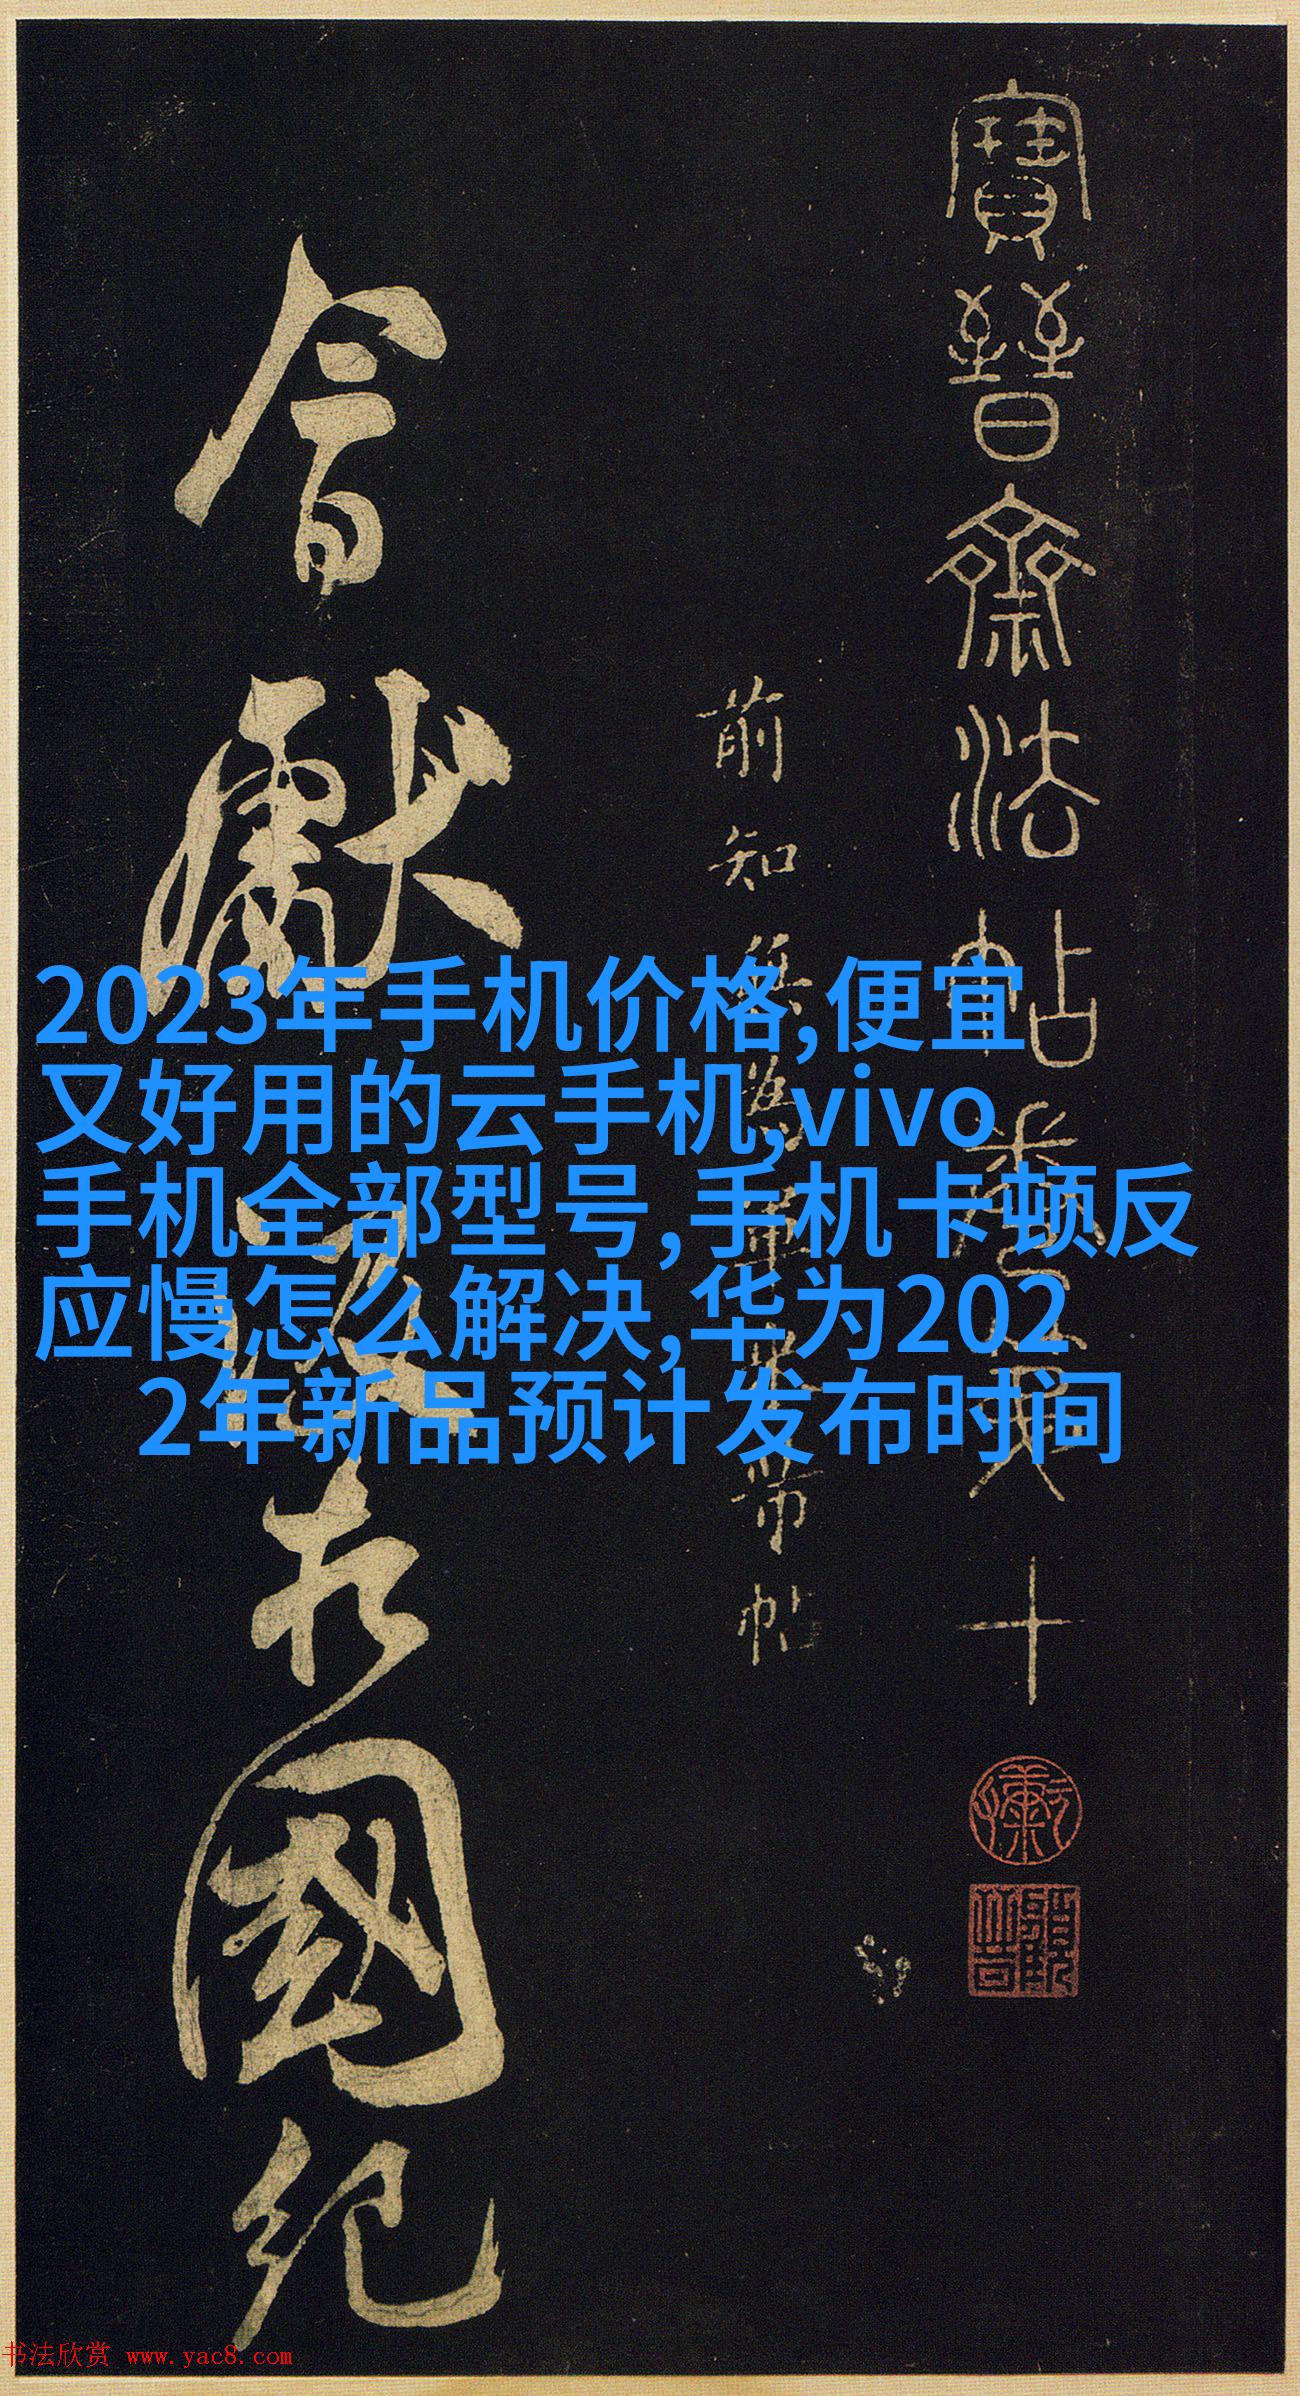 寶晉齋法帖卷第十
前知無為軍米芾帖
2023年手机价格,便宜
又好用的云手机,vivo
手机全部型号,手机卡顿反
应慢怎么解决,华为202
2年新品预计发布时间
書獻
國紀
书法欣赏 www.yac8.com